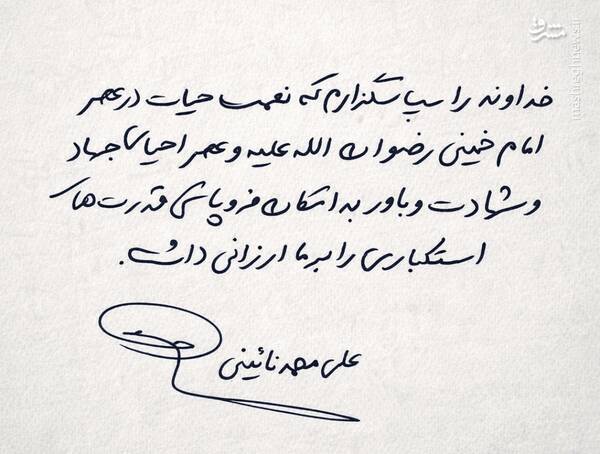 خداوند را سپاسگزارم که نعمت حیات در عصر
امام خمینی رضوان الله علیه و عصر احیای جهاد
و شهادت و باور به امکان فروپاشی قدرت‌های
استکباری را بر ما ارزانی داشت.
علی محمد نائینی
مشرق
mashreghnews.ir